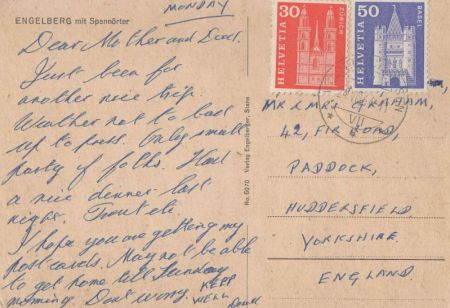 MONDAY
ENGELBERG mit Spannörter
Dear Mother and Dad.
Just been for
another nice trip
Weather not to bad
up to press. Only small
party of folks. Had
a nice dinner last
night. Trout etc.
I hope you are getting my
postcards. May not be able
to get home till Sunday
morning. Dont worry. KEEP
WELL
No. 5070 Verlag Engelberger, Stans
30
HELVETIA
ZÜRICH
50
HELVETIA
BASEL
MR & MRS GRAHAM,
42, FIR ROAD,
PADDOCK,
HUDDERSFIELD
YORKSHIRE.
ENGLAND.